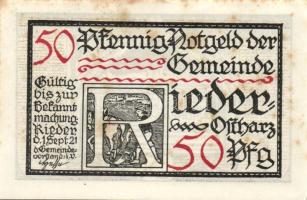 50 Pfennig Notgeld der
Gemeinde
Rieder-
Ostharz
50 Pfg
Gültig
bis zur
Bekannt
machung.
Rieder
d. 1. Sept 21
d. Gemeinde-
vorstand: i.V.